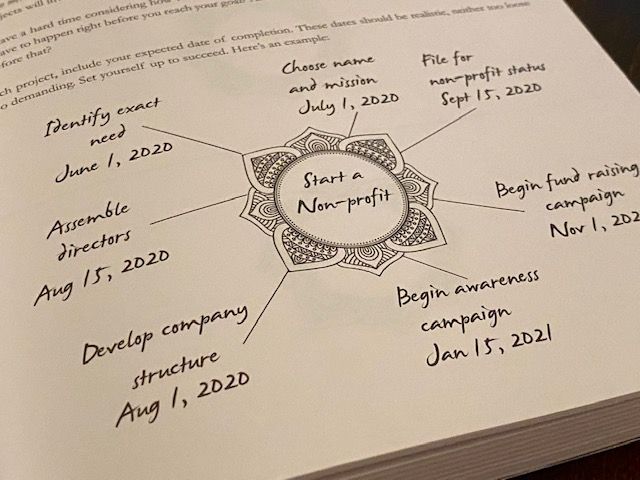 ave a hard time considering how
ave to happen right before you reach your goal
fore that?
ch project, include your expected date of completion. These dates should be realistic, neither too loose
o demanding. Set yourself up to succeed. Here's an example:
Identify exact
need
June 1, 2020
Choose name
and mission
July 1, 2020
File for
non-profit status
Sept 15, 2020
Start a
Non-profit
Assemble
directors
Aug 15, 2020
Begin fund raising
campaign
Nov 1, 202
Develop company
structure
Aug 1, 2020
Begin awareness
campaign
Jan 15, 2021